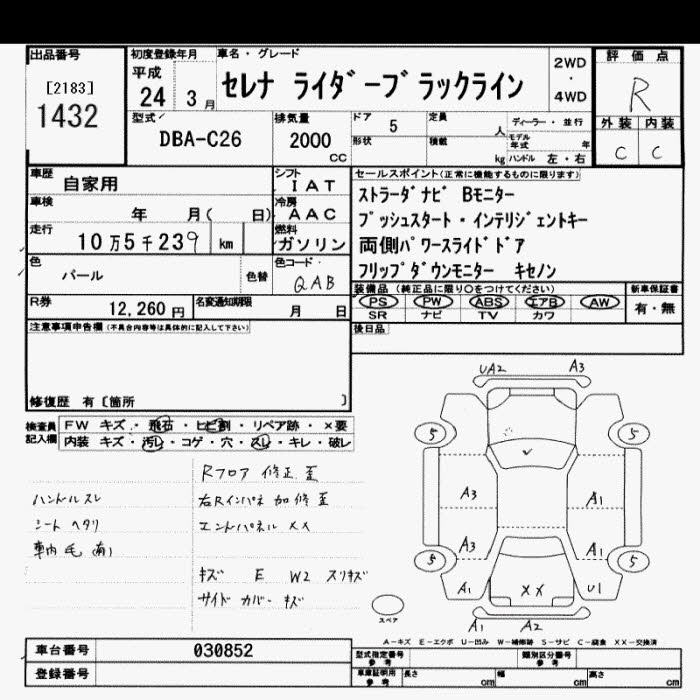 出品番号 初度登録年月 車名・グレード 2WD 評価点
[2183] 平成 セレナ ライダーブラックライン ・ R
1432 24 3月 4WD
型式 排気量 ドア 5 定員 人 ディーラー・並行 外装 内装
DBA-C26 2000 CC 形状 積載 kg モデル年式 年 C C
ハンドル 左・右
車歴 自家用 シフト IAT セールスポイント(正常に機能するものに限ります)
車検 年 月( 日) 冷房 AAC ストラーダナビ Bモニター
走行 10万5千239 km 燃料 ガソリン プッシュスタート・インテリジェントキー
色 パール 色替 色コード QAB 両側パワースライドドア
フリップダウンモニター キセノン
R券 12,260円 名変通知期限 月 日 装備品(純正品に限り○をつけてください) 新車保証書
PS PW ABS エアB AW 有・無
SR ナビ TV カワ
注意事項申告欄(不具合内容等は具体的に記入して下さい) 後日品
修復歴 有〔箇所 〕
検査員記入欄 FW キズ・飛石・ヒビ割・リペア跡・×要
内装 キズ・汚レ・コゲ・穴・スレ・キレ・破レ
Rフロア 修正 歪
ハンドルスレ 右Rインパネ 加修 歪
シート ヘタリ エンドパネル XX
車内 毛 有り
キズ E W2 スリキズ
サイドカバー キズ
UA2 A3
5 5
A3 A1
A3 A1
5 5
A1 XX U1
スペア A1 A2
A-キズ E-エクボ U-凹み W-補修跡 S-サビ C-腐食 XX-交換済
車台番号 030852 型式指定番号 参考 類別区分番号 参考
登録番号 車庫証明用 参考 長さ cm 幅 cm 高さ cm